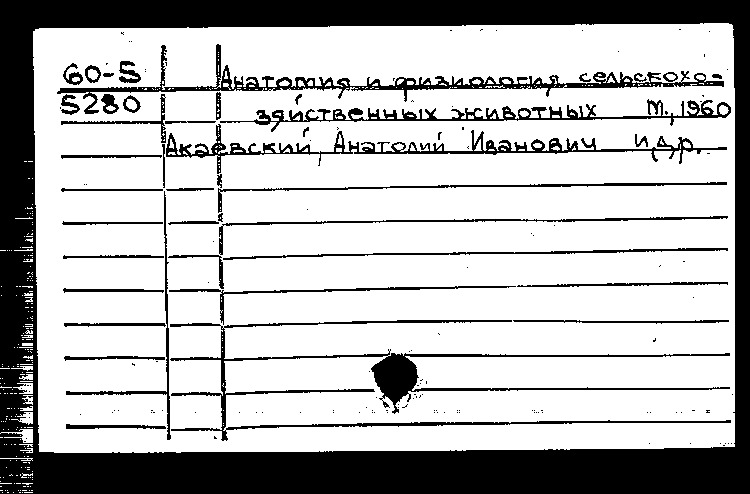 60-5 Анатомия и физиология сельскохо-
5280 зяйственных животных М., 1960
Акаевский, Анатолий Иванович и др.